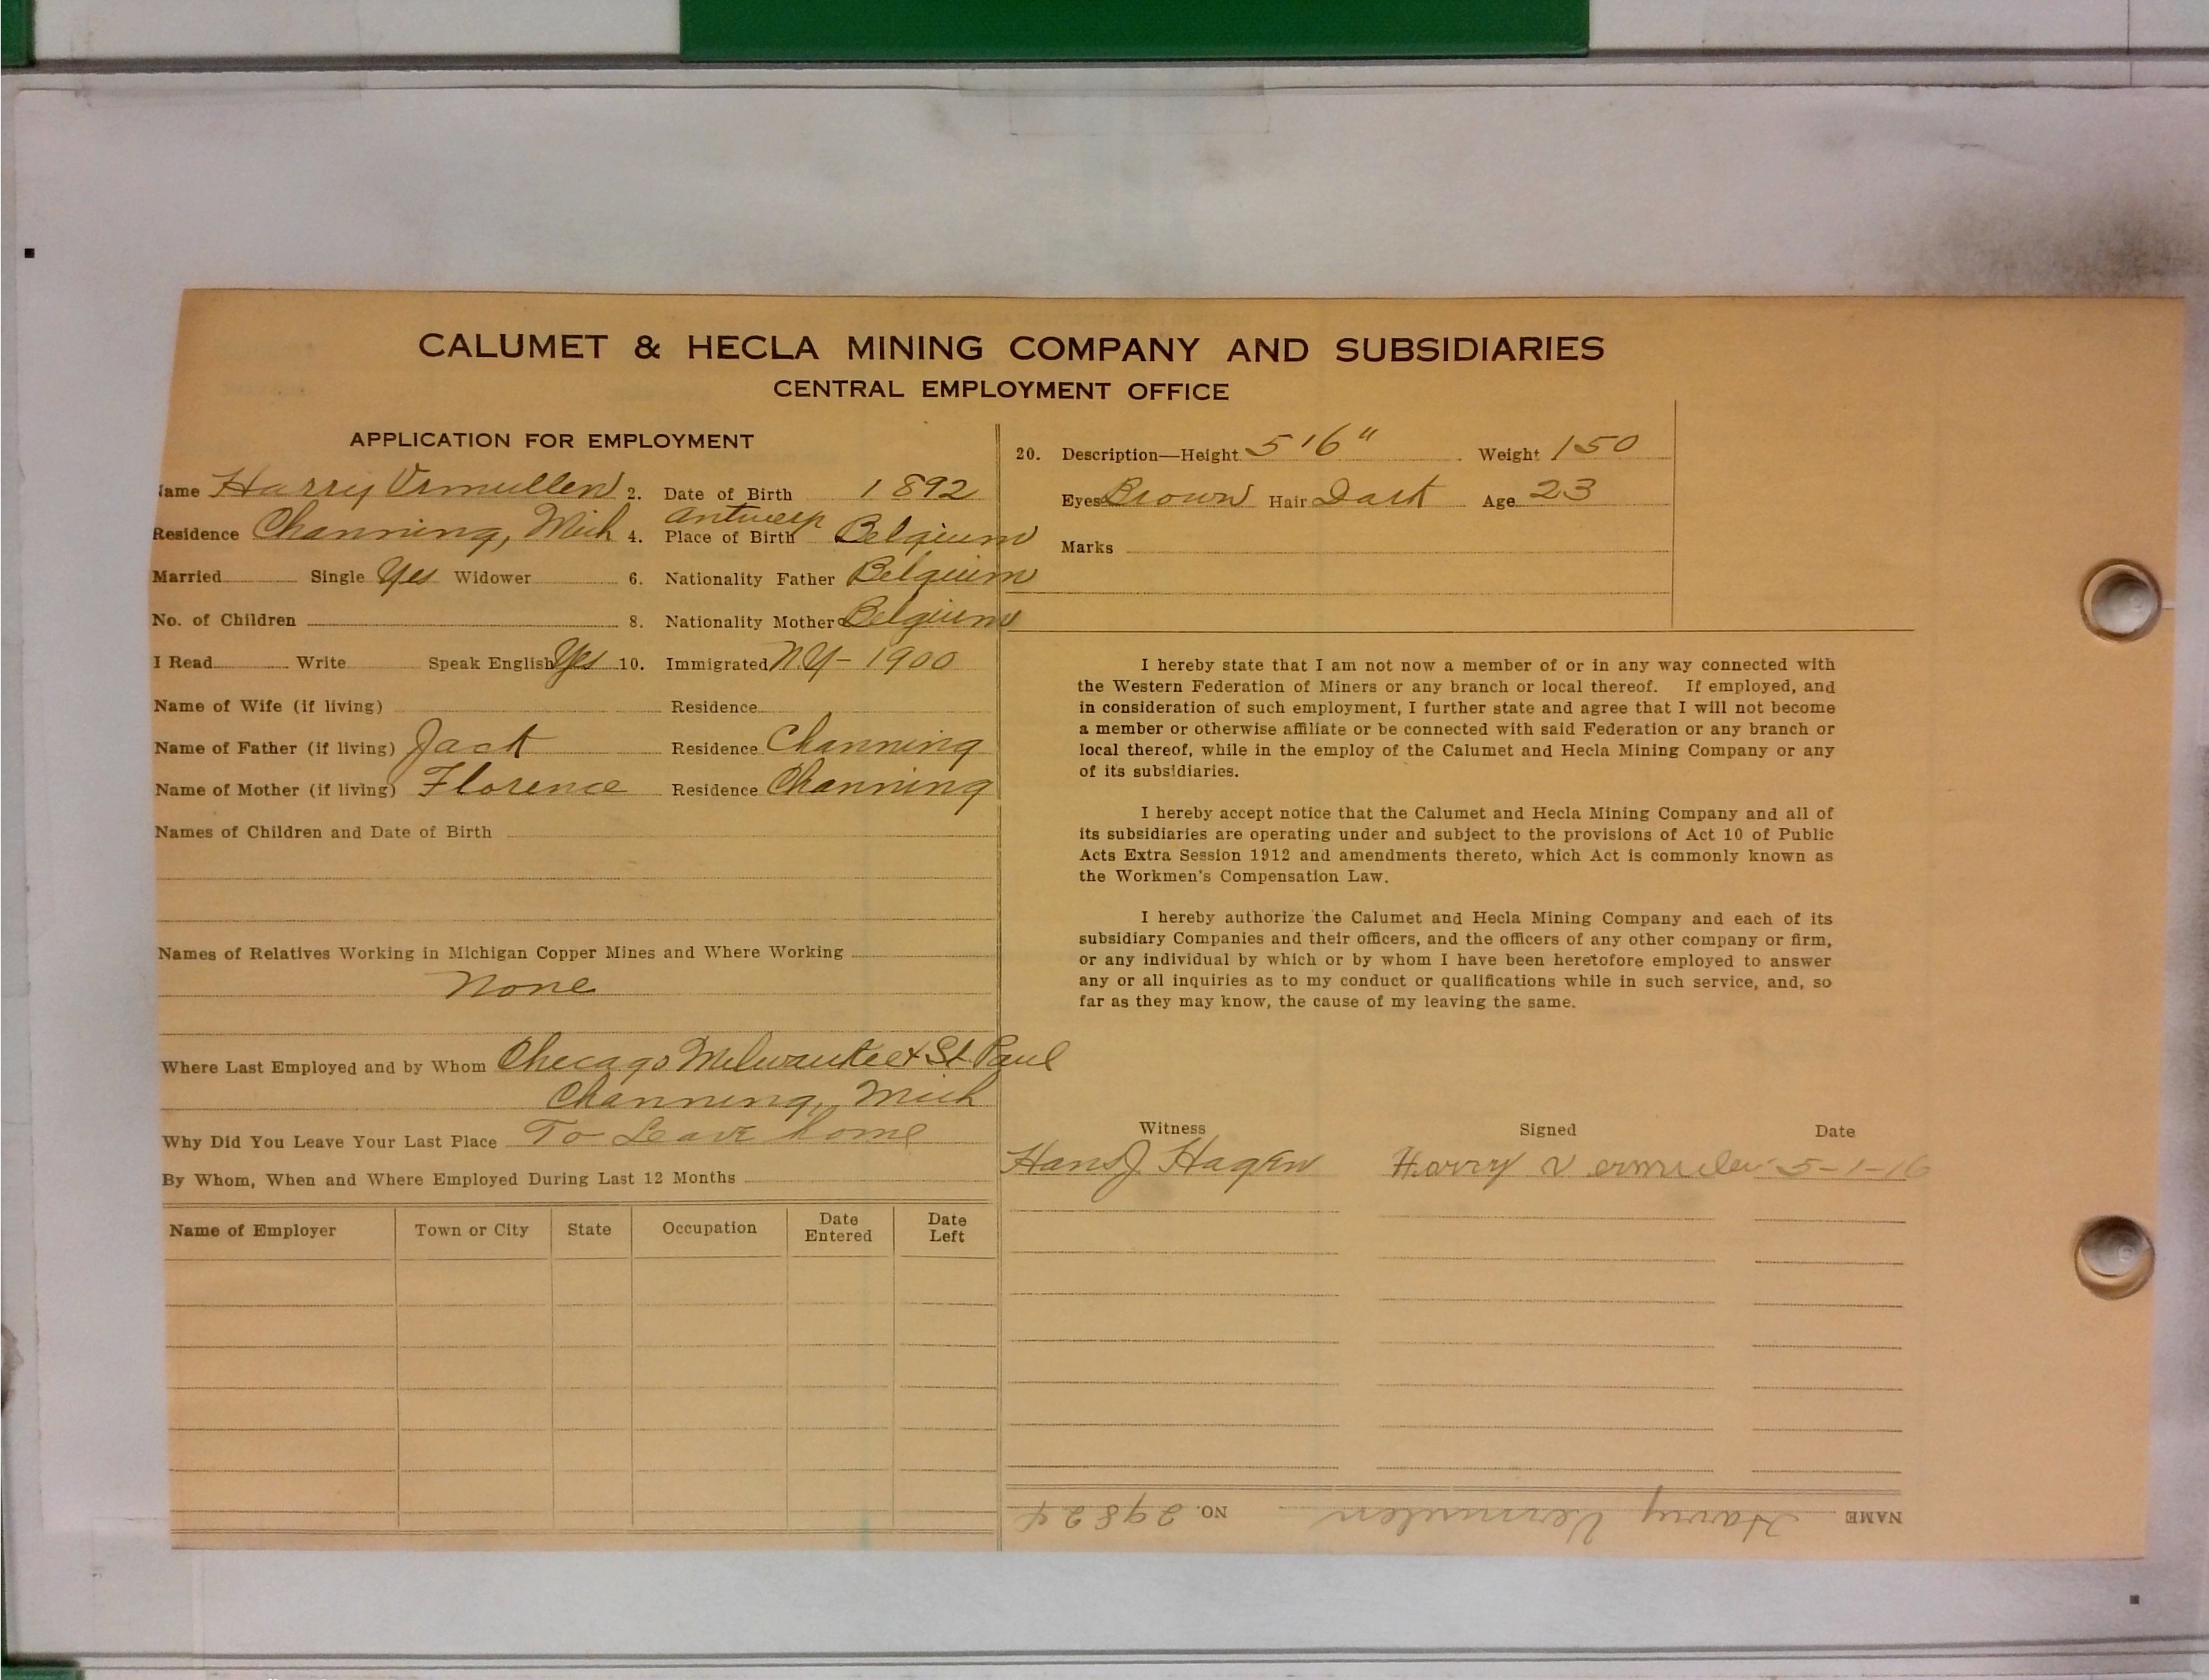 CALUMET & HECLA MINING COMPANY AND SUBSIDIARIES
CENTRAL EMPLOYMENT OFFICE
APPLICATION FOR EMPLOYMENT
Name Harry Vrmullen 2. Date of Birth 1892
Residence Channing, Mich 4. Place of Birth Antwerp Belgium
Married Single Yes Widower 6. Nationality Father Belgium
No. of Children 8. Nationality Mother Belgium
I Read Write Speak English Yes 10. Immigrated N.Y- 1900
Name of Wife (if living) Residence
Name of Father (if living) Jack Residence Channing
Name of Mother (if living) Florence Residence Channing
Names of Children and Date of Birth
Names of Relatives Working in Michigan Copper Mines and Where Working
None
Where Last Employed and by Whom Checago Melwaukee & St. Paul
Channing, Mich
Why Did You Leave Your Last Place To Leave home
By Whom, When and Where Employed During Last 12 Months
Name of Employer Town or City State Occupation Date Entered Date Left
20. Description—Height 5'6" Weight 150
Eyes Brown Hair Dark Age 23
Marks
I hereby state that I am not now a member of or in any way connected with
the Western Federation of Miners or any branch or local thereof. If employed, and
in consideration of such employment, I further state and agree that I will not become
a member or otherwise affiliate or be connected with said Federation or any branch or
local thereof, while in the employ of the Calumet and Hecla Mining Company or any
of its subsidiaries.
I hereby accept notice that the Calumet and Hecla Mining Company and all of
its subsidiaries are operating under and subject to the provisions of Act 10 of Public
Acts Extra Session 1912 and amendments thereto, which Act is commonly known as
the Workmen's Compensation Law.
I hereby authorize the Calumet and Hecla Mining Company and each of its
subsidiary Companies and their officers, and the officers of any other company or firm,
or any individual by which or by whom I have been heretofore employed to answer
any or all inquiries as to my conduct or qualifications while in such service, and, so
far as they may know, the cause of my leaving the same.
Witness Signed Date
Hans J Hagen Harry Vermulen 5-1-16
NAME Harry Vermulen NO. 29824